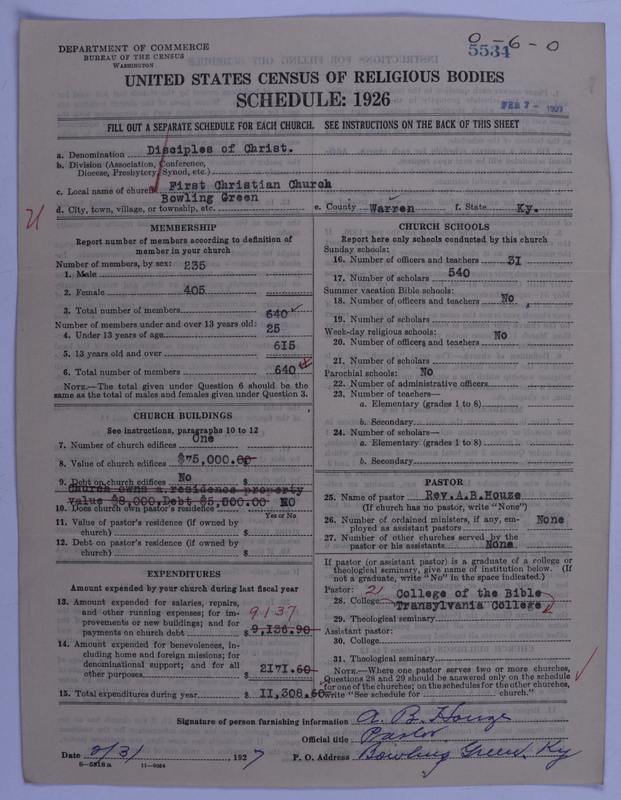 0-6-0
5534
DEPARTMENT OF COMMERCE
BUREAU OF THE CENSUS
WASHINGTON
UNITED STATES CENSUS OF RELIGIOUS BODIES
SCHEDULE: 1926
FEB 7 - 1927
FILL OUT A SEPARATE SCHEDULE FOR EACH CHURCH. SEE INSTRUCTIONS ON THE BACK OF THIS SHEET
a. Denomination Disciples of Christ.
b. Division (Association, Conference,
Diocese, Presbytery, Synod, etc.)
c. Local name of church First Christian Church
d. City, town, village, or township, etc. Bowling Green e. County Warren f. State Ky.
21
MEMBERSHIP
Report number of members according to definition of
member in your church
Number of members, by sex:
1. Male 235
2. Female 405
3. Total number of members 640
Number of members under and over 13 years old:
4. Under 13 years of age 25
5. 13 years old and over 615
6. Total number of members 640
NOTE.—The total given under Question 6 should be the
same as the total of males and females given under Question 3.
CHURCH BUILDINGS
See instructions, paragraphs 10 to 12
7. Number of church edifices One
8. Value of church edifices $75,000.00
9. Debt on church edifices No $
Church owns a residence property
value $8,000,Debt $5,600.00 NO
10. Does church own pastor's residence
Yes or No
11. Value of pastor's residence (if owned by
church) $
12. Debt on pastor's residence (if owned by
church) $
EXPENDITURES
Amount expended by your church during last fiscal year
13. Amount expended for salaries, repairs,
and other running expenses; for im-
provements or new buildings; and for
payments on church debt $ 9,136.90
9137
14. Amount expended for benevolences, in-
cluding home and foreign missions; for
denominational support; and for all
other purposes $ 2171.60
15. Total expenditures during year $ 11,308.50
CHURCH SCHOOLS
Report here only schools conducted by this church
Sunday schools:
16. Number of officers and teachers 31
17. Number of scholars 540
Summer vacation Bible schools:
18. Number of officers and teachers No
19. Number of scholars
Week-day religious schools:
20. Number of officers and teachers No
21. Number of scholars
Parochial schools: No
22. Number of administrative officers
23. Number of teachers—
a. Elementary (grades 1 to 8)
b. Secondary
24. Number of scholars—
a. Elementary (grades 1 to 8)
b. Secondary
PASTOR
25. Name of pastor Rev.A.B.Houze
(If church has no pastor, write "None")
26. Number of ordained ministers, if any, em-
ployed as assistant pastors None
27. Number of other churches served by the
pastor or his assistants None
If pastor (or assistant pastor) is a graduate of a college or
theological seminary, give name of institution below. (If
not a graduate, write "No" in the space indicated.)
Pastor: 21
28. College College of the Bible
Transylvania College
29. Theological seminary
Assistant pastor:
30. College
31. Theological seminary
NOTE.—Where one pastor serves two or more churches,
Questions 28 and 29 should be answered only on the schedule
for one of the churches; on the schedules for the other churches,
write "See schedule for church."
Signature of person furnishing information A. B. Houze
Official title Pastor
Date 2/31, 1927 P. O. Address Bowling Green, Ky
8-5518a 11-9264